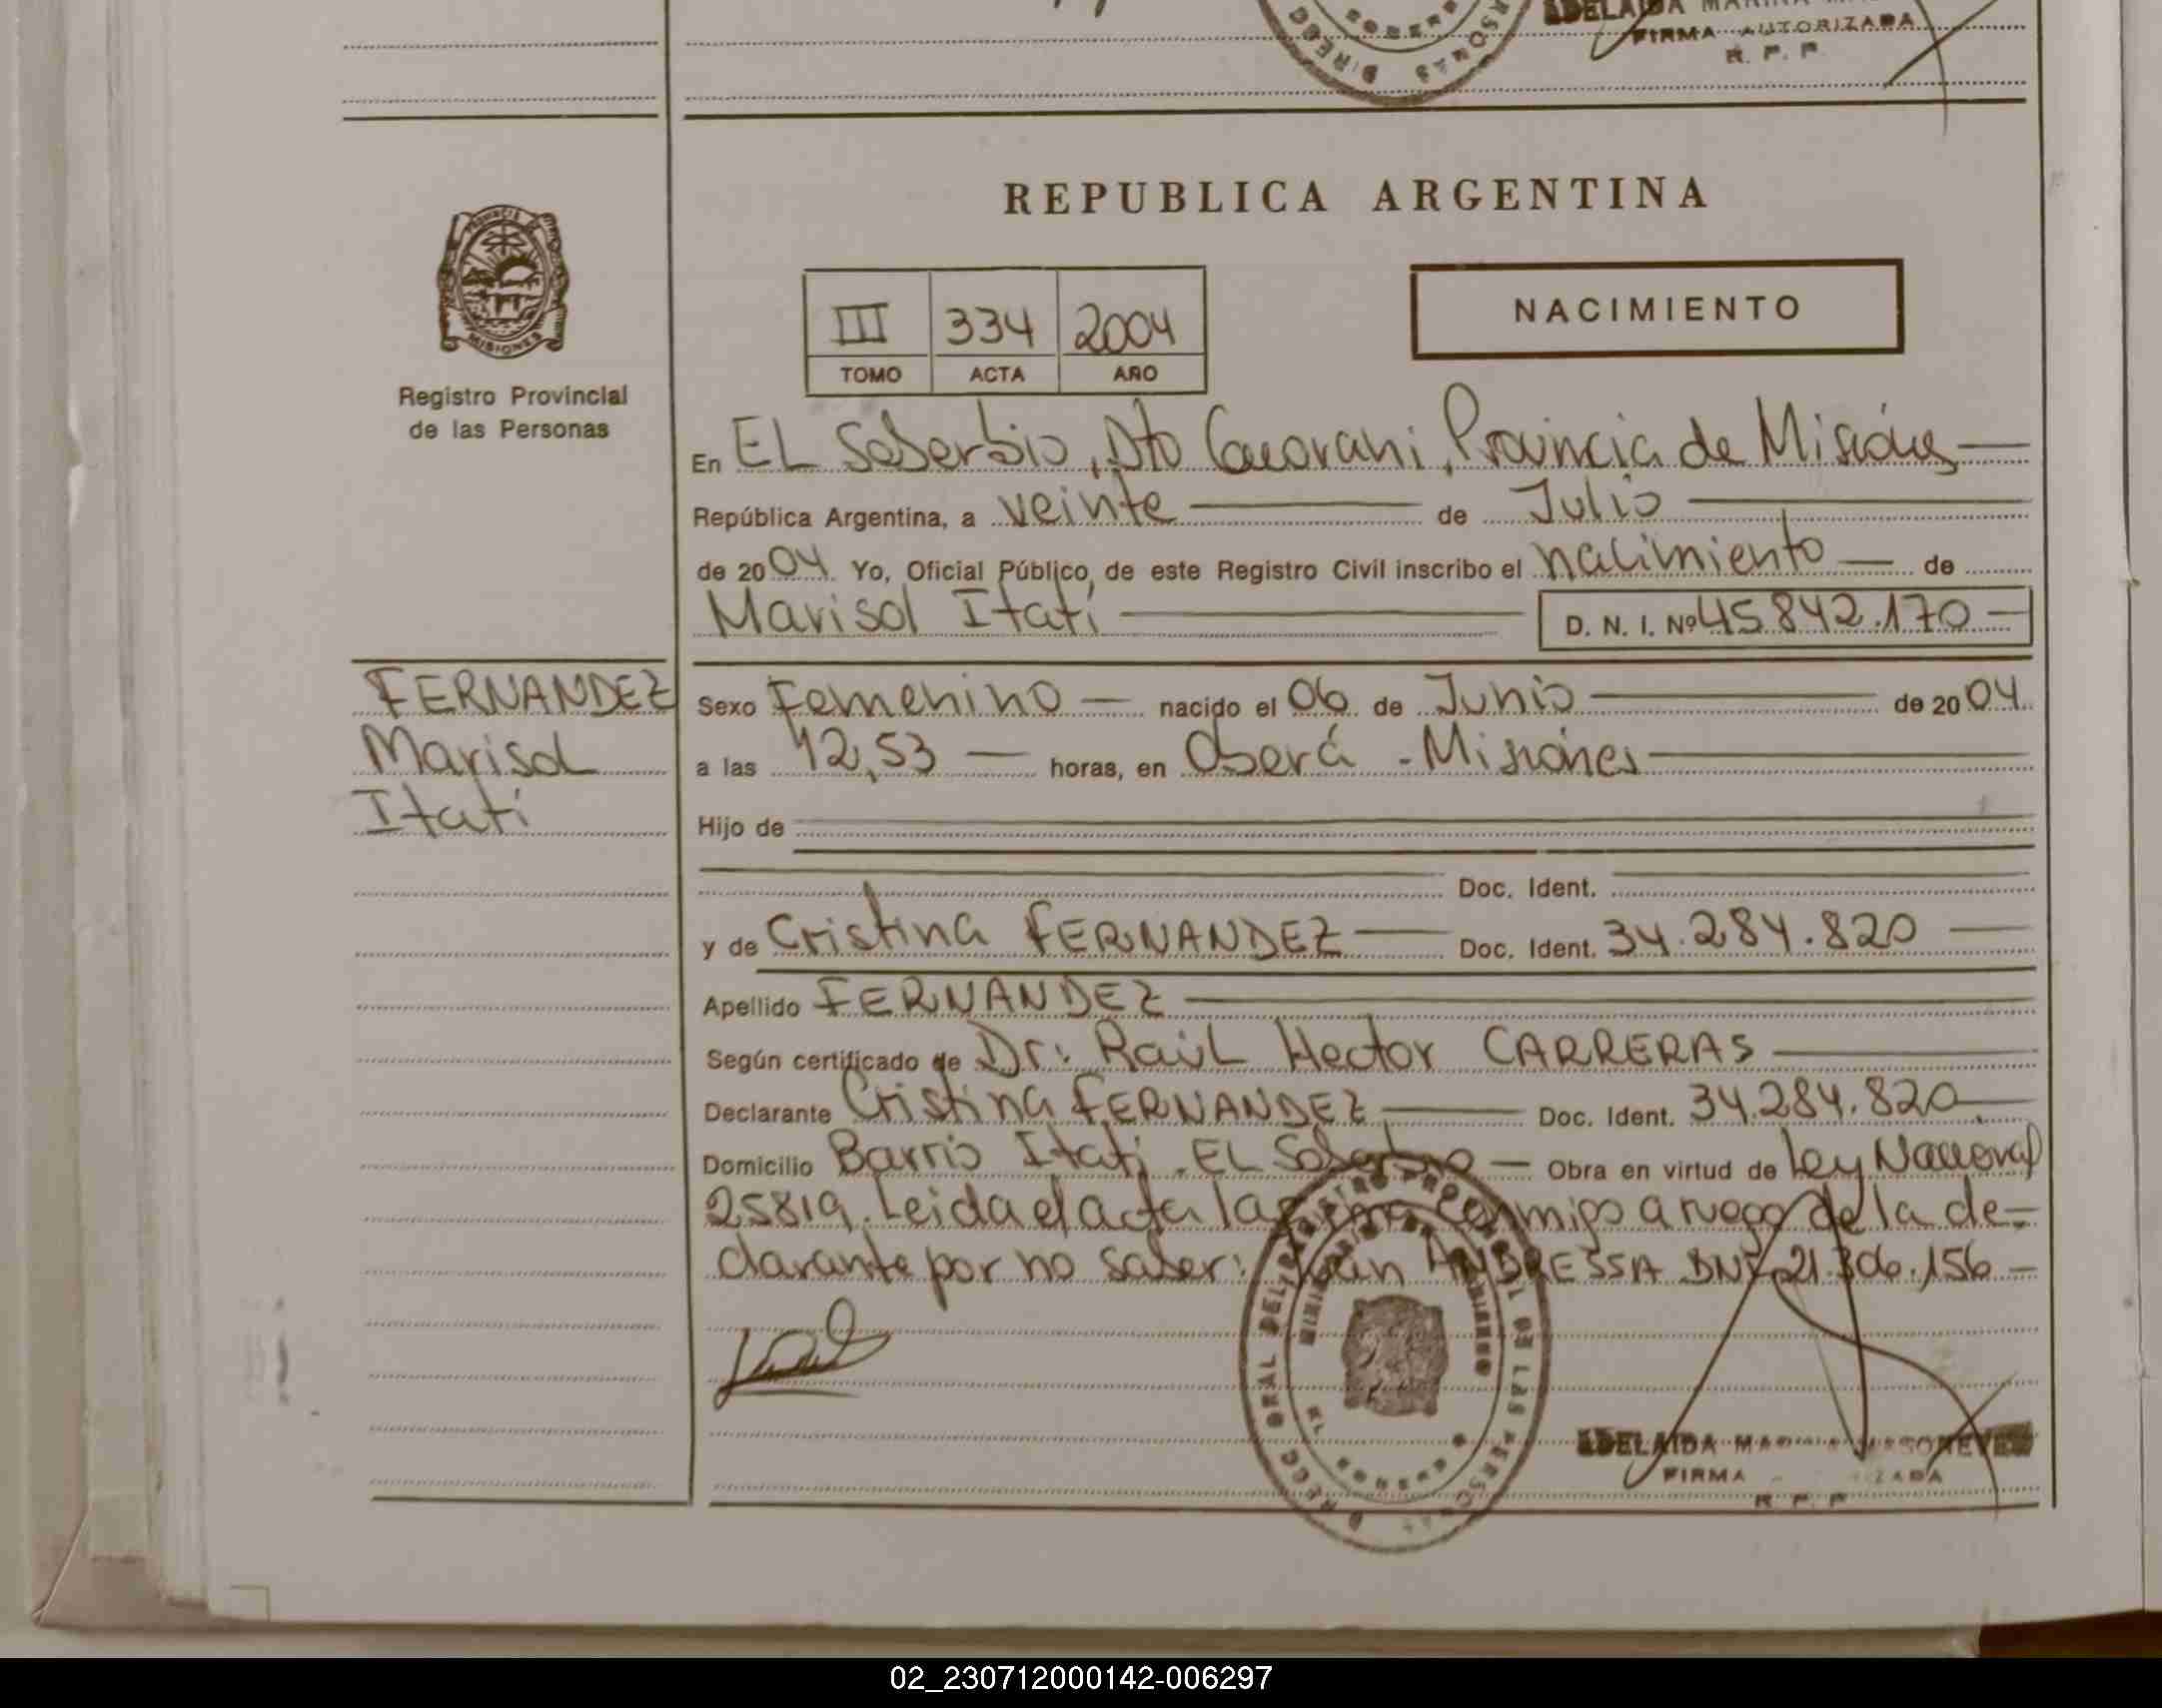 ADELAIDA
FIRMA AUTORIZADA
R. P. P.
REPUBLICA ARGENTINA
PROVINCIA DE
MISIONES
Registro Provincial
de las Personas
III 334 2004
TOMO ACTA AÑO
NACIMIENTO
En EL Soberbio, Dto Guarani, Provincia de Misiones
República Argentina, a veinte de Julio
de 2004 Yo, Oficial Público, de este Registro Civil inscribo el nacimiento de
Marisol Itatí D. N. I. Nº 45.842.170
FERNANDEZ
Marisol
Itatí
Sexo Femenino nacido el 06 de Junio de 2004
a las 12,53 horas, en Oberá - Misiones
Hijo de
Doc. Ident.
y de Cristina FERNANDEZ Doc. Ident. 34.284.820
Apellido FERNANDEZ
Según certificado de Dr: Raúl Hector CARRERAS
Declarante Cristina FERNANDEZ Doc. Ident. 34.284.820
Domicilio Barrio Itati - EL Soberbio Obra en virtud de Ley Nacional
25819. Leida el acta la firma conmigo a ruego de la de-
clarante por no saber: Juan ANDRESSA DNI 21.306.156
ADELAIDA
FIRMA
R. P. P.
02_230712000142-006297